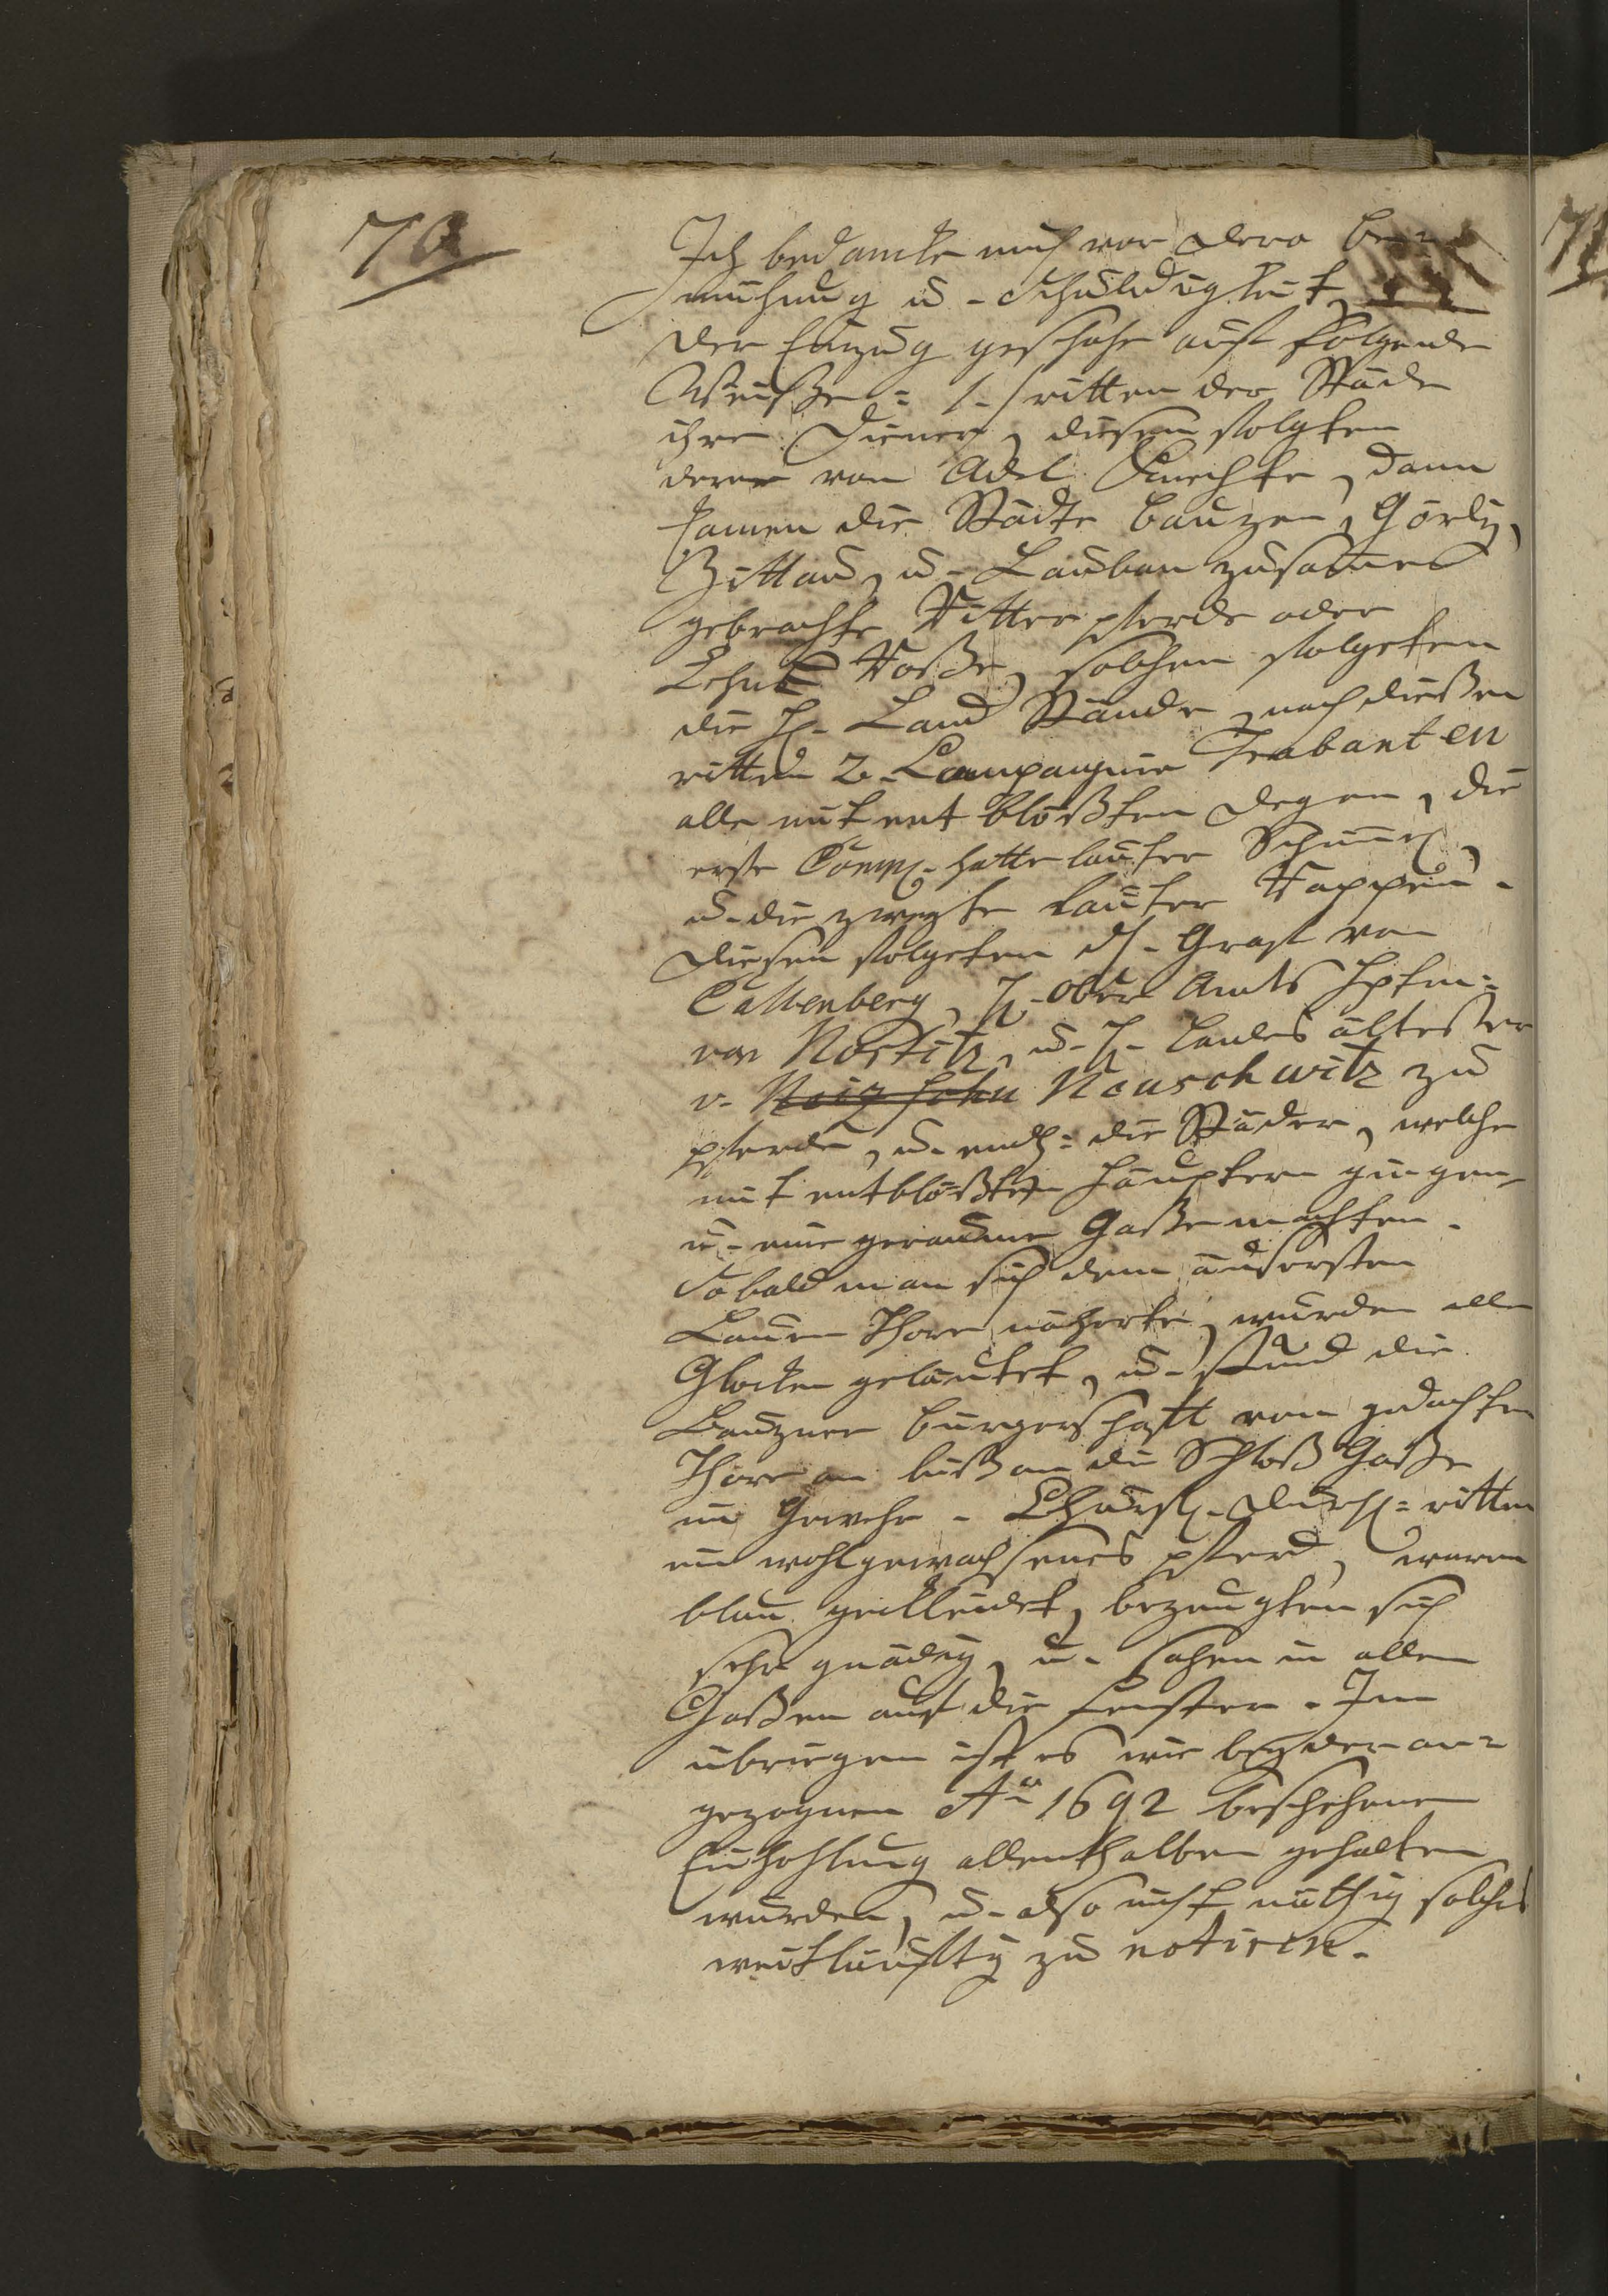 70
Ich bedancke mich vor dero Be=
mühung u. Schuldigkeit
Der Einzug geschahe auf folgende
Weiße: 1. ritten der Städe
ihre Diener, diesen folgten
derer von Adel Knechte, dann
kamen die Städte Bauzen, Görliz,
Zittau, u. Lauban zusamen
gebrachte Ritter pferde oder
Lehns Roße, solchen folgeten
die H. Land Stände, nach dießen
ritten 2. Compagnie Trabanten
alle mit entblößten Degen, die
erste Comp. hatte lauter Schimel,
u. die zweyte lauter Rappen.
Diesen folgeten H. Graf von
Callenberg, H. Ober Amts Hptm:
von Nostitz, u. H. Landes ältester
v. Neuschwitz zu
pferde, u. endl: die Städer, welche
mit entblößten Häuptern gingen,
u. eine geraume Gaße machten.
Sobald man sich dem äusersten
Lauen Thore näherte, wurden alle
Glocken geläutet, u. stund die
Bauzner Burgerschafft von gedachten
Thore an biß an die Schloß Gaße
im Gewehr. Churfl. Durchl: ritten
ein wohlgewachsenes pferd, waren
blau gekleidet, bezeugten sich
sehr gnädig, u. sahen in allen
Gaßen auf die Fenster. Im
übriegen ist es wie bey der an=
gezognen Ao 1692 beschehenen
Einhohlung allenthalben gehalten
wurden, u. also nicht nöthig solches
weitläufftig zu notiren.
71